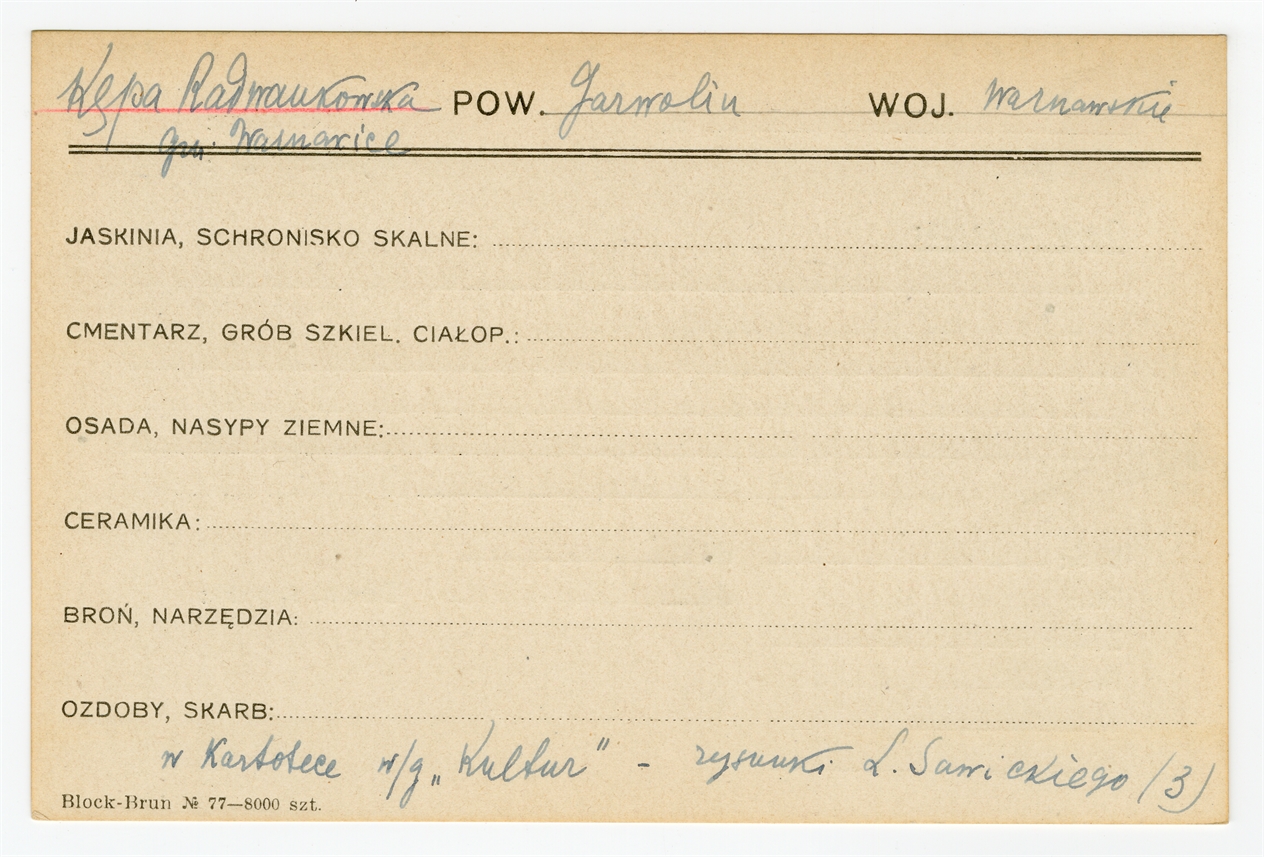 Kępa Radwankowska POW. Garwolin WOJ. Warszawskie
gm. Warszawice
JASKINIA, SCHRONISKO SKALNE:
CMENTARZ, GRÓB SZKIEL. CIAŁOP.:
OSADA, NASYPY ZIEMNE:
CERAMIKA:
BROŃ, NARZĘDZIA:
OZDOBY, SKARB:
w Kartotece w/g „Kultur" - rysunki L. Sawickiego (3)
Block-Brun № 77—8000 szt.